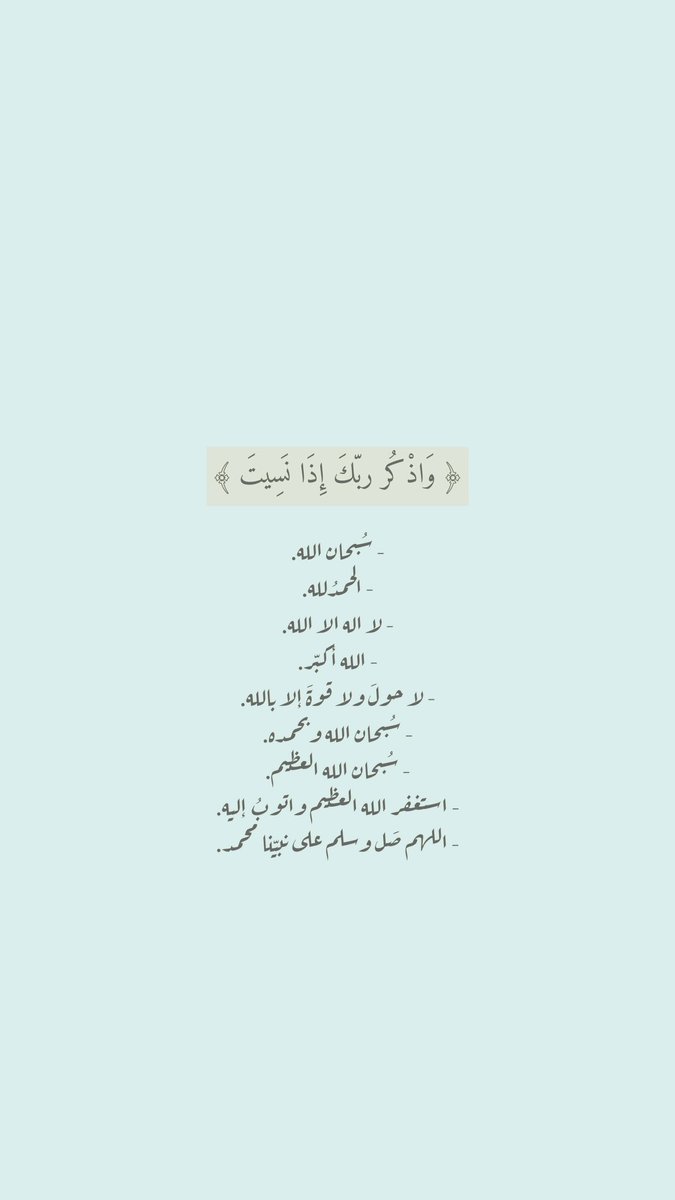 ﴿ وَاذْكُر ربّكَ إِذَا نَسِيتَ ﴾
- سُبحان الله.
- الحمدُلله.
- لا اله الا الله.
- الله أكبّر.
- لا حولَ ولا قوةَ إلا بالله.
- سُبحان الله وبحمده.
- سُبحان الله العظيم.
- استغفر الله العظيم واتوبُ إليه.
- اللهم صَل وسلم على نبيّنا محمد.